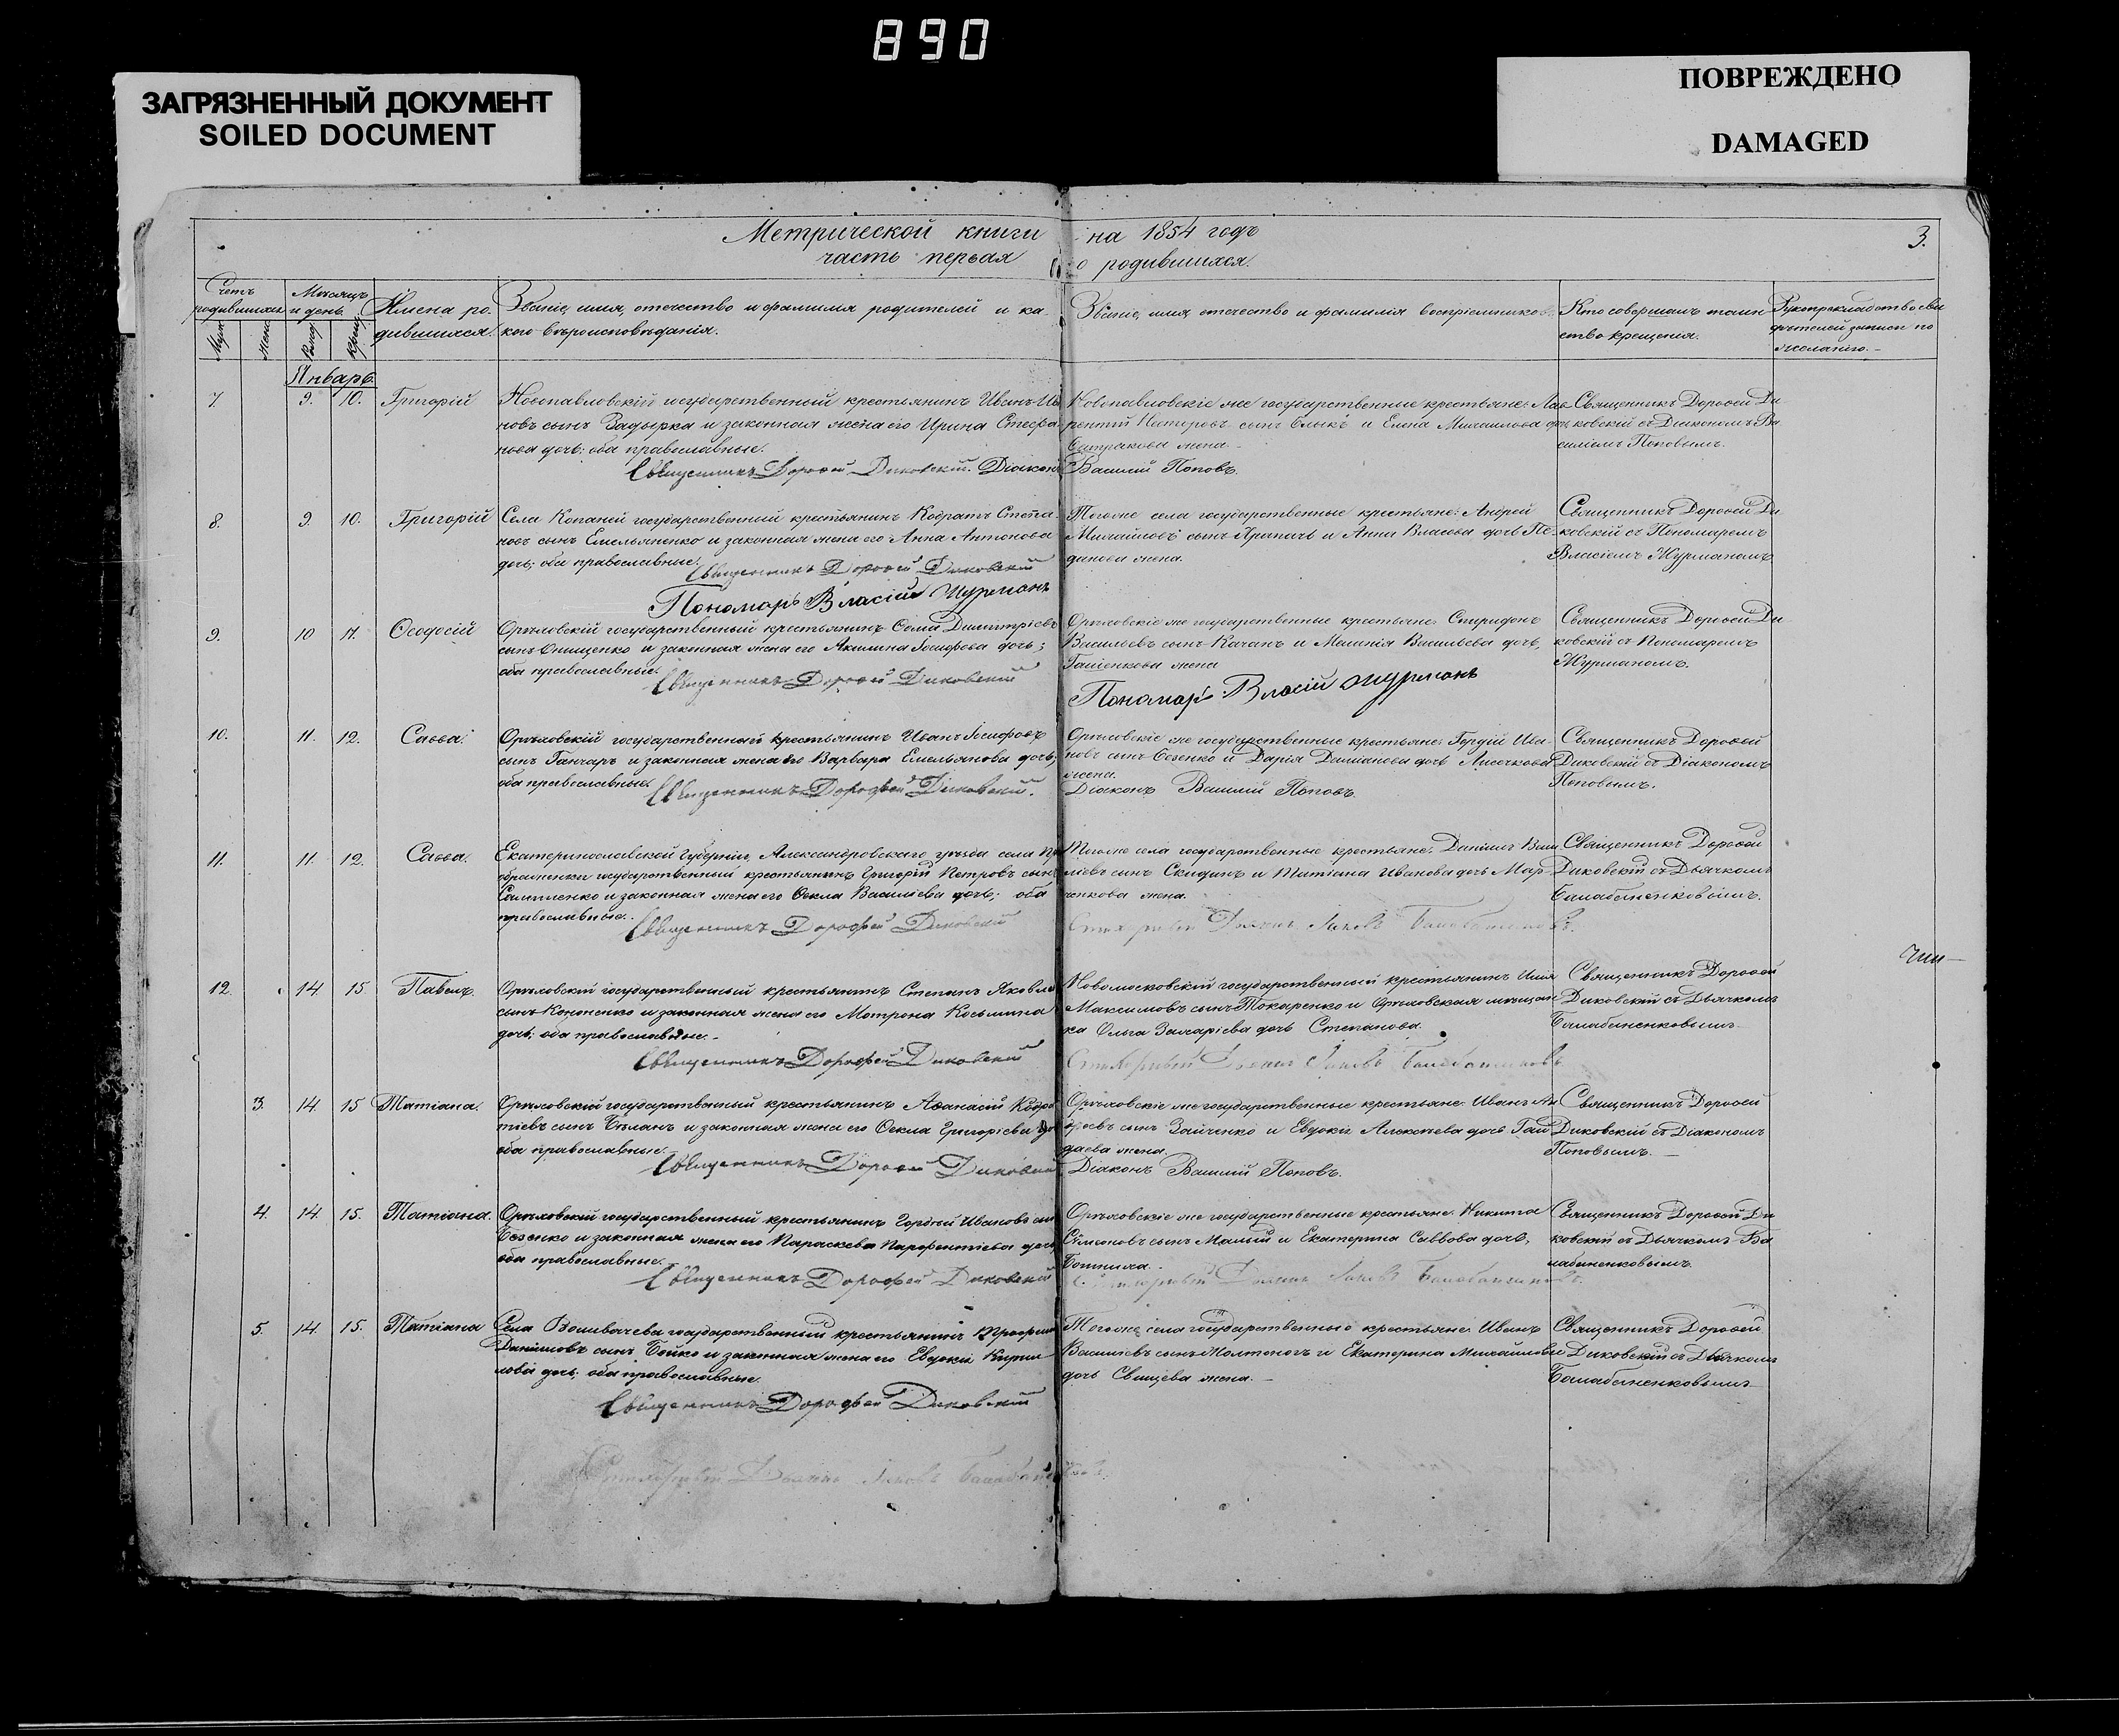 890
ЗАГРЯЗНЕННЫЙ ДОКУМЕНТ
SOILED DOCUMENT
ПОВРЕЖДЕНО
DAMAGED
Метрической книги на 1854 годъ
часть первая о родившихся.
3.
Счетъ родившихся
Мѣсяцъ и день.
Имена родившихся.
Званіе, имя, отечество и фамилія родителей и ка
кого вѣроисповѣданія.
Званіе, имя отечество и фамилія воспріемниковъ.
Кто совершалъ таин
ство крещенія.
Рукоприкладство сви
дѣтелей записи по
желанію.
Январь.
7. 9. 10. Григорій
Новопавловскій государственный крестьянинъ Иванъ Ива
новъ сынъ Задырка и законная жена его Ирина Стефа
нова дочь: оба православные.
Священникъ Дороѳей Диковскій. Діаконъ Василій Поповъ.
Новопавловскіе же государственные крестьяне: Лав
рентій сынъ и Елена Михаилова дочь
жена.
Священникъ Дороѳей Ди
ковскій съ Діакономъ Ва
силіемъ Поповымъ.
8. 9. 10. Григорій
Села Копаней государственный крестьянинъ Кодратъ Степа
новъ сынъ Емельяненко и законная жена его Анна Антонова
дочь; оба православные.
Священникъ Дороѳей Диковскій
Пономарь Власій Журманъ
Тогоже села государственные крестьяне: Андрей
Михайловъ сынъ и Анна Власова дочь
жена.
Священникъ Дороѳей Ди
ковскій съ Пономаремъ
Власіемъ Журманомъ
9. 10 11. Ѳеодосій
Орѣховскій государственный крестьянинъ Ѳома Димитріевъ
сынъ Онищенко и законная жена его Акилина Іосифова дочь;
оба православные.
Священникъ Дороѳей Диковскій
Орѣховскіе же государственные крестьяне: Спиридонъ
Васильевъ сынъ Качанъ и Меланія Васильева дочь,
жена
Пономарь Власій Журманъ
Священникъ Дороѳей Ди
ковскій съ Пономаремъ
Журманомъ.
10. 11. 12. Савва.
Орѣховскій государственный крестьянинъ Иванъ Іосифовъ
сынъ Ганчаръ и законная жена его Варвара Емельянова дочь;
оба православные.
Священникъ Дорофей Диковскій.
Орѣховскіе же государственные крестьяне: Гордій Ива
новъ сынъ и Дарія Даміанова дочь Лисичкова
жена.
Діаконъ Василій Поповъ.
Священникъ Дороѳей
Диковскій съ Діакономъ
Поповымъ.
11. 11. 12. Савва.
Екатеринославской Губерніи, Александровскаго уѣзда села Пре
ображенки государственный крестьянинъ Григорій Петровъ сынъ
и законная жена его Ѳекла Василіева дочь; оба
православные.
Священникъ Дорофей Диковскій
Тогоже села государственные крестьяне: Даніилъ Васи
ліевъ сынъ Скидинъ и Татіана Иванова дочь Мар
ченкова жена.
Священникъ Дороѳей
Диковскій съ Дьячкомъ
Балабаненковымъ.
Чин
12. 14. 15. Павелъ.
Орѣховскій государственный крестьянинъ Степанъ Яковле
сынъ Кононенко и законная жена его Мотрона Косьмина
дочь; оба православные.
Священникъ Дорофей Диковскій
Новомосковскій государственный крестьянинъ Илія
Максимовъ сынъ Токаренко и Орѣховская мѣщан
ка Ольга Захаріева дочь Степанова.
Священникъ Дороѳей
Диковскій съ Дьячкомъ
Балабаненковымъ
3. 14. 15 Татіана.
Орѣховскій государственный крестьянинъ Аѳанасій Кодра
тіевъ сынъ Бѣланъ и законная жена его Ѳекла Григоріева дочь
оба православные.
Священникъ Дороѳей Диковскій
Орѣховскіе же государственные крестьяне: Иванъ Ан
дреевъ сынъ Зайченко и Евдокія Алексѣева дочь Гай
даева жена.
Діаконъ Василій Поповъ.
Священникъ Дороѳей
Диковскій съ Діакономъ
Поповымъ.
4. 14. 15. Татіана.
Орѣховскій государственный крестьянинъ Гордѣй Ивановъ сынъ
и законная жена его Параскева Парфентіева дочь
оба православные.
Священникъ Дорофей Диковскій
Орѣховскіе же государственные крестьяне: Никита
Сѵмеоновъ сынъ Малый и Екатерина Саввова дочь,
Священникъ Дороѳей Ди
ковскій съ Дьячкомъ Ба
лабаненковымъ.
5. 14. 15. Татіана
Села государственный крестьянинъ Трофимъ
Даніиловъ сынъ Бойко и законная жена его Евдокія Кирил
лова дочь; оба православные.
Священникъ Дорофей Диковскій
Тогоже села государственные крестьяне: Иванъ
Василіевъ сынъ Жолтоногъ и Екатерина Михайлова
дочь Свищева жена.
Священникъ Дороѳей
Диковскій съ Дьячкомъ
Балабаненковымъ